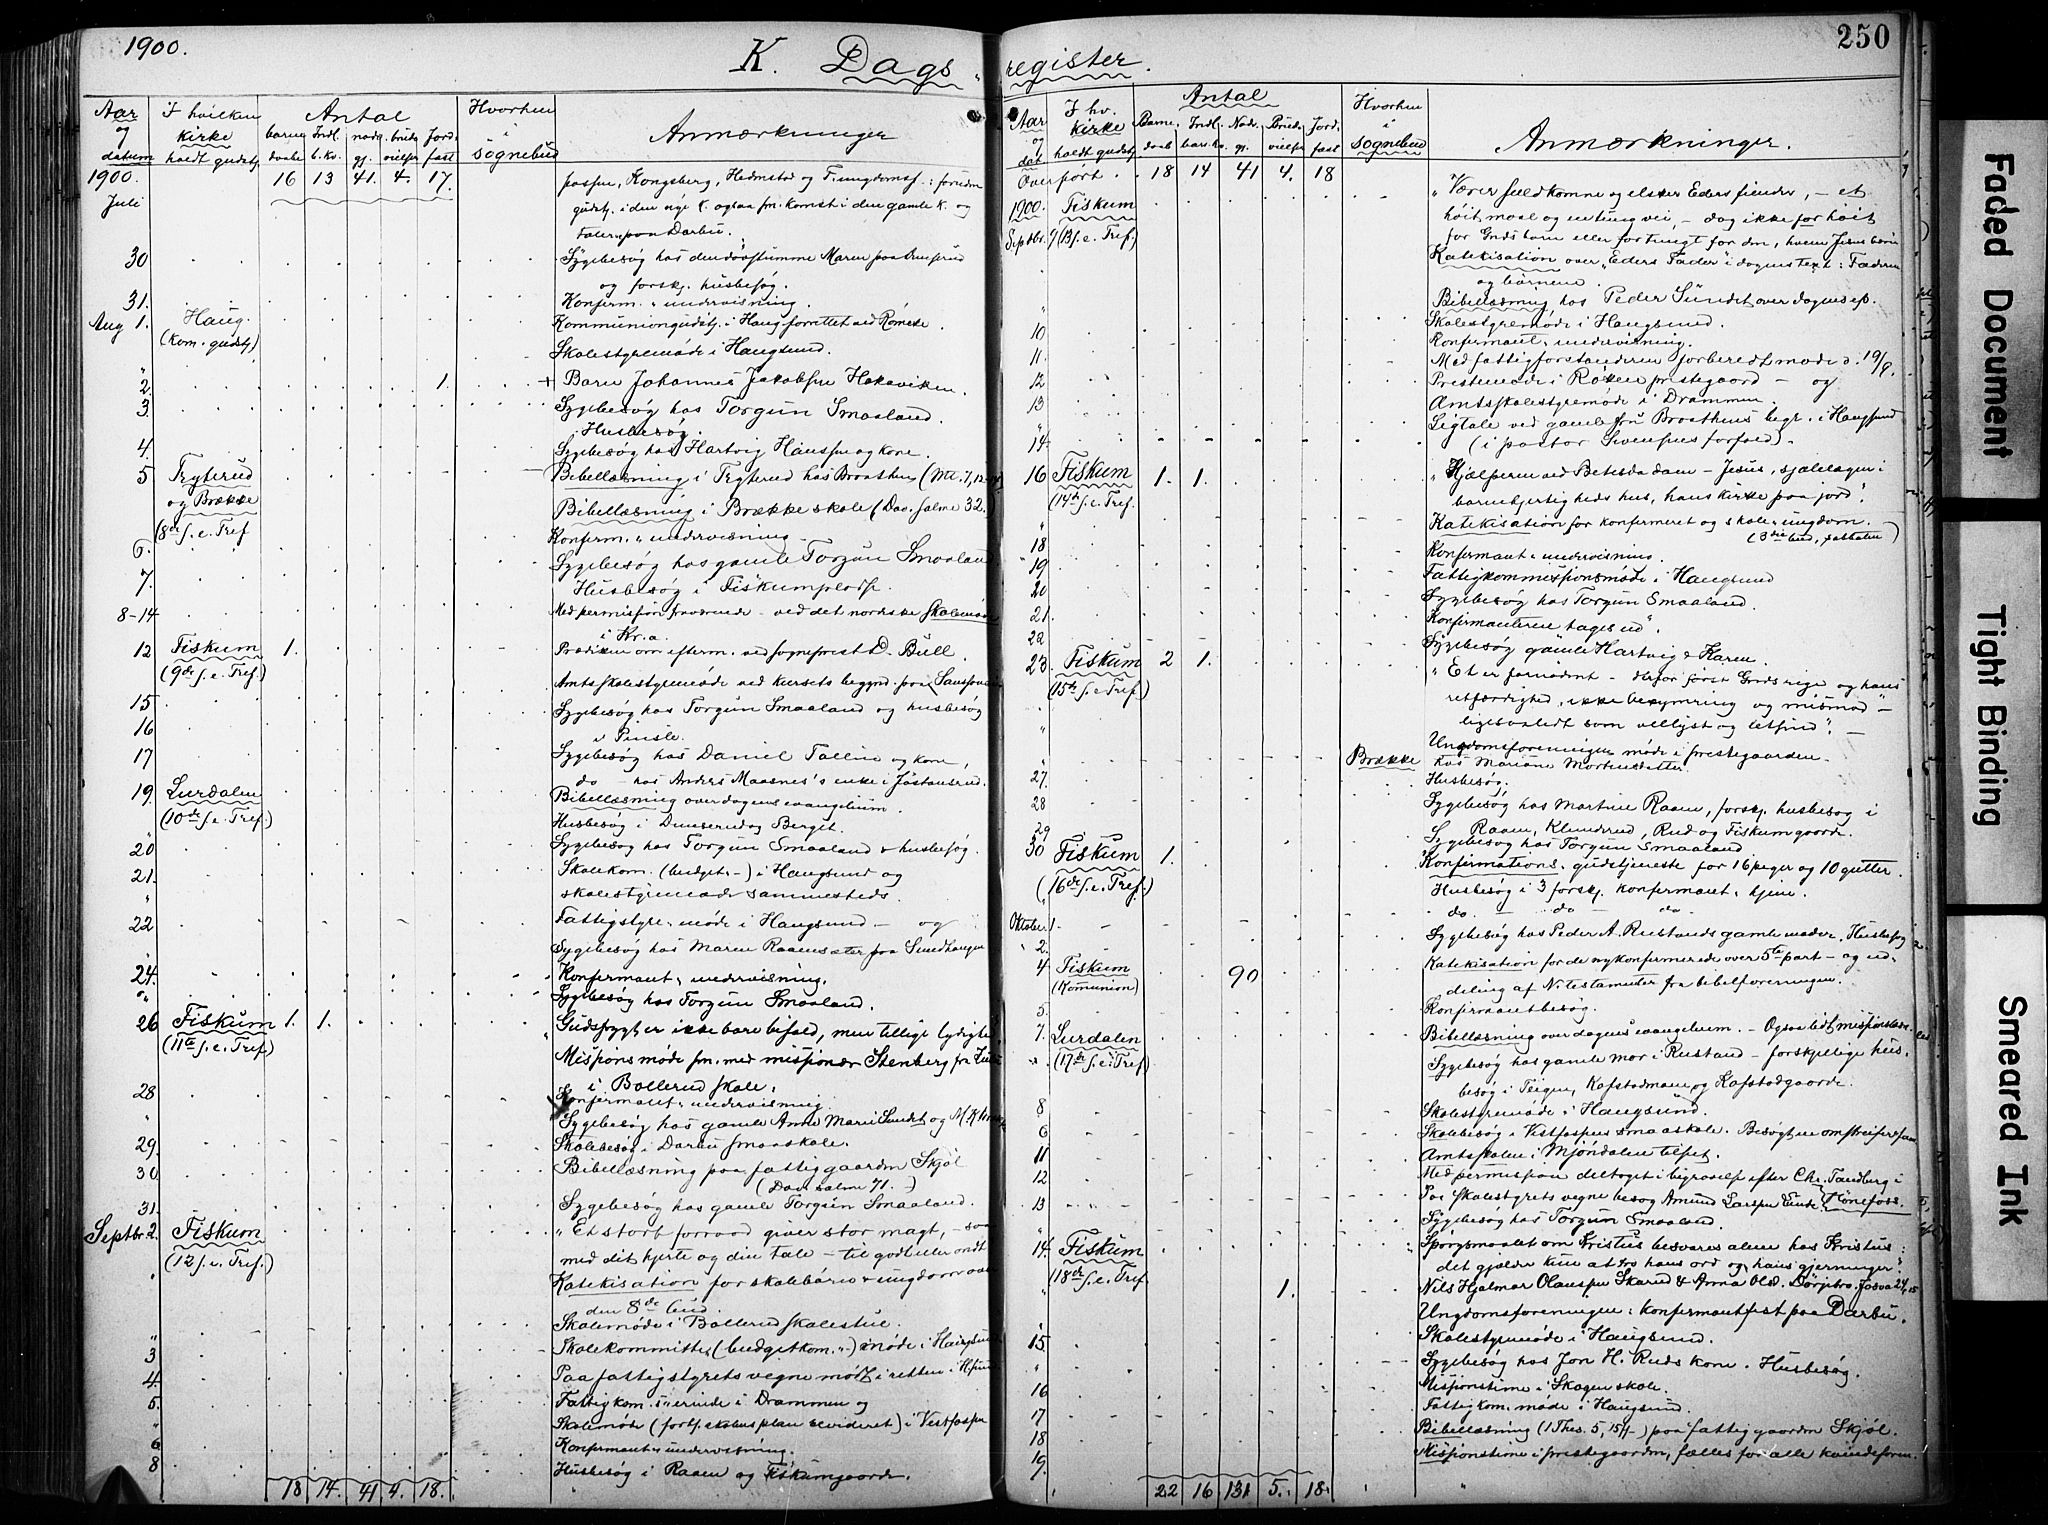 1900.
K. Dags-
Aar og datum
I hvilken kirke holdt gudstj.
Antal
barne daabe
Indl. b. kv.
nadv. gj.
brude vielser
Jord. fast
Hvorhen i sognebud
Anmærkninger
1900. 16 13 41. 4. 17. Kongsberg, Hedmstad og F. ungdomsf.: foruden
Juli gudstj. i den nye K. ogsaa fm. komst i den gamle K. og
taler paa Darbu.
30 Sygebesøg hos den døvstumme Maren paa
og forskj. husbesøg.
31. Konfirm. undervisning.
Aug 1. Haug. Kommuniongudstj. i Haug forrettet ved
(Kom. gudstj)
" Skolestyremøde i Haugsund.
2. 1. + Barn Johannes Jakobsen Hakaviken.
3. Sygebesøg hos Torgun Smaaland.
Husbesøg.
4. Sygebesøg hos Hartvig Hansen og kone.
5 Tryterud Bibellæsning i Tryterud hos Braathen (Mt. 7,
og Brække
(8de s. e. Tref Bibellæsning i Brække skole (Dav. salme 32.)
6. Konfirm. undervisning
7. Sygebesøg hos gamle Torgun Smaaland
Husbesøg i
8-14 Med permission fraværende - ved det nordiske skolemøde
i Kr.a.
12 Fiskum 1. Prædiken om efterm. ved sogneprest D. Bull.
(9de s. e. Tref)
Amtsskolestyremøde ved kursets begynd. paa
15 Sygebesøg hos Torgun Smaaland og husbesøg
16 i Pinsle.
17 Sygebesøg hos Daniel Tallin og kone,
do - hos Anders Maasnes's enke i
19. Lurdalen Bibellæsning over dagens evangelium.
(10de s. e. Tref.)
Husbesøg i Dunserud og Berget.
20 Sygebesøg hos Torgun Smaaland & husbesøg.
21. Skolekom. (budgets-) i Haugsund og
" skolestyremøde sammesteds.
22 Fattigstyre-møde i Haugsund - og
Sygebesøg hos Maren paa Sundhaugen
24. Konfirmant-undervisning.
" Sygebesøg hos Torgun Smaaland.
26 Fiskum 1. 1. "Gudsfrygt er ikke bare bifald, men tillige lydighed
(11te s. e. Tref)
Missions møde fm. med missionær Stenberg fra Zulu
i Bollerud skole.
28 Konfirmant-undervisning.
" Sygebesøg hos gamle Anne Marie Sundet og M.
29. Skolebesøg i Darbu smaaskole.
30 Bibellæsning paa fattiggaarden Skjøl
(Dav. salme 71.)
31. Sygebesøg hos gamle Torgun Smaaland.
Septbr. 2. Fiskum "Et stort forraad giver stor magt, - saa
(12 s. e. Tref.) med dit hjerte og din tale - til godt eller ondt
" Katekisation for skolebørn & ungdom over
den 8de bud.
Skolemøde i Bollerud skolestue.
3 Skolekommitte (budgetkom.-) møde i Haugsund
4. Paa fattigstyrets vegne mødt i retten i H.sund
5. Fattigkom.s ærinde i Drammen og
" Skolemøde (forts. skolens plan revideret) i Vestfossen
6 Konfirmant-undervisning.
8 Husbesøg i Raaen og Fiskumgaarde.
18 14. 41 4. 18.
register.
250
Aar og dat
I hv. kirke holdt gudstj.
Antal
Barne. daab
Indl. bar. kv.
Nadv. gj.
Brude. vielser
Jord. fast
Hvorhen i sognebud
Anmærkninger.
Overført. 18 14 41 4. 18
1900. Fiskum "Værer fuldkomne og elsker Eders fiender, - et
Septbr. 9 (13 s. e. Tref.) høit maal og en tung vei, - dog ikke for høit
for Guds barn eller for tungt for den, hvem Jesus bærer
Katekisation over "Eders Fader" i dagens text: Faderen
og børnene.
" Bibellæsning hos Peder Sundet over dagens ep.
10 Skolestyremøde i Haugsund.
11. Konfirmant-undervisning.
Med fattigforstanderen forberedt møde d. 19/9.
12 Prestemøde i Røken prestegaard - og
13 Amtsskolestyremøde i Drammen.
14 Ligtale ved gamle fru Braathens begr. i Haugsund
(i pastor Svensens forfald) -
16 Fiskum 1. 1. "Hjælperen ved Betesda dam - Jesus, sjælelægen i
(14de s. e. Tref. barmhjertigheds hus, hans kirke paa jord".
" Katekisation for konfirmeret og skole-ungdom.
(3die bud, sabbaten)
18 Konfirmant-undervisning.
19 Fattigkommissionsmøde i Haugsund
20 Sygebesøg hos Torgun Smaaland.
21. Konfirmanterne tages ud".
22 Sygebesøg gamle Hartvig & Karen.
23. Fiskum 2 1. "Et er fornødent - derfor først Guds rige og hans
(15de s. e. Tref.) retfærdighed, ikke bekymring og mismod -
ligesaalidt som vellyst og letsind". -
" Ungdomsforeningen møde i prestegaarden.
Brække hos Mariane Mortensdatter
27. Husbesøg.
28 Sygebesøg hos Martine Raaen, forskj. husbesøg i
Raaen, Klunderud, Rud og Fiskumgaarde.
29 Sygebesøg hos Torgun Smaaland
30 Fiskum 1. Konfirmations-gudstjeneste for 16 piger og 10 gutter.
(16de s. e. Tref.) Husbesøg i 3 forskj. konfirmant-hjem.
Oktober 1 do. - do - do.
2. Sygebesøg hos Peder A. Rustands gamle moder. Husbesøg
4 Fiskum 90 Katekisation for de nykonfirmerede over 5te part - og ud-
(Kommunion) deling af N. testamenter fra bibelforeningen.
5. Konfirmantbesøg.
7. Lurdalen Bibellæsning over dagens evangelium. - Ogsaa lidt
(17de s. e. Tref) Sygebesøg hos gamle mor i Rustand - forskjellige hus-
besøg i Teigen, Kafstadmoen og Kafstadgaarde.
8 Skolestyremøde i Haugsund.
6 Skolebesøg i Vestfossens smaaskole. Besøgt en
11 Amtsskolen i Mjøndalen tilset.
12 Med permission deltaget i begravelse efter Chr. Tandberg i
13 Paa skolestyrets vegne besøg Amund Larsen Hønefoss.
" Sygebesøg hos Torgun Smaaland.
14. Fiskum "Spørgsmaalet om Kristus besvares alene hos Kristus:
(18de s. e. Tref. det gjælder kun at tro hans ord og hans gjerninger".
1. Nils Hjalmar Olaussen Skarud & Anna Olsd. Dørjebro. Josva 24, 15
" Ungdomsforeningen: konfirmantfest paa Darbu.
15. Skolestyremøde i Haugsund.
" Sygebesøg hos Jon H. Ruds kone. Husbesøg.
16 Missionstime i Skogen skole.
17 Fattigkom. møde i Haugsund.
18 Bibellæsning (1 Thes. 5, 15 f-) paa fattiggaarden Skjøl.
19. Missionstime i prestegaarden, fælles for alle kvindeforen.
22 16 131 5. 18.
Faded Document
Tight Binding
Smeared Ink